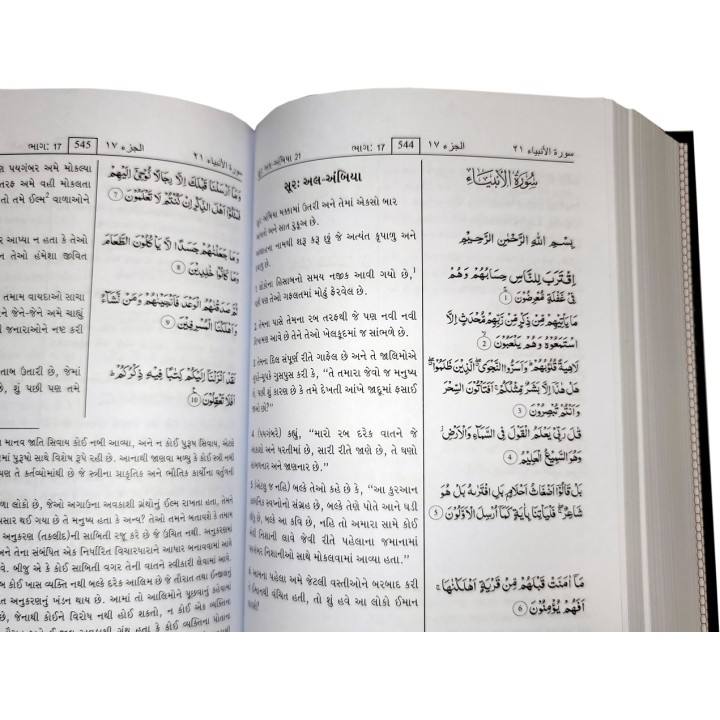 سورة الأنبياء ٢١
الجزء ١٧
544
ભાગ: 17
સૂર: અલ-અંબિયા 21
سُورَةُ الْأَنْبِيَاءِ
بِسْمِ اللَّهِ الرَّحْمَٰنِ الرَّحِيمِ
اقْتَرَبَ لِلنَّاسِ حِسَابُهُمْ وَهُمْ
فِي غَفْلَةٍ مُعْرِضُونَ ①
مَا يَأْتِيهِمْ مِنْ ذِكْرٍ مِنْ رَبِّهِمْ مُحْدَثٍ إِلَّا
اسْتَمَعُوهُ وَهُمْ يَلْعَبُونَ ②
لَاهِيَةً قُلُوبُهُمْ ۗ وَأَسَرُّوا النَّجْوَى ۖ الَّذِينَ ظَلَمُوا ۖ
هَلْ هَٰذَا إِلَّا بَشَرٌ مِثْلُكُمْ ۖ أَفَتَأْتُونَ السِّحْرَ
وَأَنْتُمْ تُبْصِرُونَ ③
قُلْ رَبِّي يَعْلَمُ الْقَوْلَ فِي السَّمَاءِ وَالْأَرْضِ ۖ
وَهُوَ السَّمِيعُ الْعَلِيمُ ④
بَلْ قَالُوا أَضْغَاثُ أَحْلَامٍ بَلِ افْتَرَاهُ بَلْ هُوَ
شَاعِرٌ ۖ فَلْيَأْتِنَا بِآيَةٍ كَمَا أُرْسِلَ الْأَوَّلُونَ ⑤
مَا آمَنَتْ قَبْلَهُمْ مِنْ قَرْيَةٍ أَهْلَكْنَاهَا ۖ
أَفَهُمْ يُؤْمِنُونَ ⑥
સૂર: અલ-અંબિયા
સૂર: અંબિયા મક્કામાં ઉતરી અને તેમાં એકસો બાર
આયતો અને સાત રુકૂઅ છે.
અલ્લાહના નામથી શરૂ કરૂં છું જે અત્યંત કૃપાળુ અને
દયાળુ છે.
1 લોકોના હિસાબનો સમય નજીક આવી ગયો છે,¹
છતાં પણ તેઓ ગફલતમાં મોઢું ફેરવેલ છે.
2 તેમના પાસે તેમના રબ તરફથી જે પણ નવી નવી
આવે છે તેને તેઓ ખેલકૂદમાં જ સાંભળે છે.
3 તેમના દિલ સંપૂર્ણ રીતે ગાફેલ છે અને તે જાલિમોએ
ગુસપુસ કરી કે, “તે તમારા જેવો જ મનુષ્ય
પછી શું કારણ છે કે તમે દેખતી આંખે જાદૂમાં ફસાઈ
જાઓ છો?”
4 (પયગંબરે) કહ્યું, “મારો રબ દરેક વાતને જે
આકાશ અને ધરતીમાં છે, સારી રીતે જાણે છે, તે ઘણો
સાંભળનાર અને જાણનાર છે.”
5 (એટલું જ નહિ) બલ્કે તેઓ કહે છે કે, “આ કુરઆન
સ્વપ્નોનો સંગ્રહ છે, બલ્કે તેણે પોતે આને ઘડી
છે, બલ્કે આ કવિ છે, નહિ તો અમારા સામે કોઈ
એવી નિશાની લાવે જેવી રીતે પહેલાના જમાનામાં
નિશાનીઓ સાથે મોકલવામાં આવ્યા હતા.”
6 આમના પહેલા અમે જેટલી વસ્તીઓને બરબાદ કરી
ઈમાનથી વંચિત હતી, તો શું હવે આ લોકો ઈમાન
سورة الأنبياء ٢١
الجزء ١٧
545
ભાગ: 17
وَمَا أَرْسَلْنَا قَبْلَكَ إِلَّا رِجَالًا نُوحِي إِلَيْهِمْ
فَاسْأَلُوا أَهْلَ الذِّكْرِ إِنْ كُنْتُمْ لَا تَعْلَمُونَ ⑦
وَمَا جَعَلْنَاهُمْ جَسَدًا لَا يَأْكُلُونَ الطَّعَامَ
وَمَا كَانُوا خَالِدِينَ ⑧
ثُمَّ صَدَقْنَاهُمُ الْوَعْدَ فَأَنْجَيْنَاهُمْ وَمَنْ نَشَاءُ
وَأَهْلَكْنَا الْمُسْرِفِينَ ⑨
لَقَدْ أَنْزَلْنَا إِلَيْكُمْ كِتَابًا فِيهِ ذِكْرُكُمْ ۖ
أَفَلَا تَعْقِلُونَ ⑩
પયગંબર અમે મોકલ્યા
તરફ અમે વહી મોકલતા
તો તમે ઈલ્મ² વાળાઓને
આપ્યા ન હતા કે તેઓ
તેઓ હંમેશા જીવિત
તમામ વાયદાઓ સાચા
જેને-જેને અમે ચાહ્યું
જનારાઓને નષ્ટ કરી
કિતાબ ઉતારી છે, જેમાં
શું પછી પણ તમે
માનવ જાતિ સિવાય કોઈ નબી આવ્યા, અને ન કોઈ પુરૂષ સિવાય, એટલે
પુરૂષો સાથે વિશેષ રૂપે રહી છે. આનાથી જાણવા મળ્યું કે કોઈ સ્ત્રી નબી
પણ તે કર્તવ્યોમાંથી છે જે સ્ત્રીના પ્રાકૃતિક અને ભૌતિક કાર્યોના વર્તુળની
લોકો છે, જેઓ અગાઉના અવકાશી ગ્રંથોનું ઈલ્મ રાખતા હતા, તેમને
પસાર થઈ ગયા છે તે મનુષ્ય હતા કે અન્ય? તેઓ તમને બતાવશે કે તમામ
અનુકરણ (તકલીદ)ની સાબિતી રજૂ કરે છે જે ઉચિત નથી. અનુકરણમાં
અને તેના સંબંધિત એક નિર્ધારિત વિચારધારાને આધાર બનાવવામાં આવે
બીજું એ કે કોઈ સાબિતી વગર તેની વાતને સ્વીકારી લેવામાં આવે.
કોઈ ખાસ વ્યક્તિ નથી બલ્કે દરેક આલિમ છે જે તૌરાત તથા ઈન્જીલનું
અનુકરણનું ખંડન થાય છે. આમાં તો આલિમોને પૂછવાનું કહેવામાં
જેનાથી કોઈને વિરોધ નથી હોઈ શકતો, ન કોઈ એક વ્યક્તિના